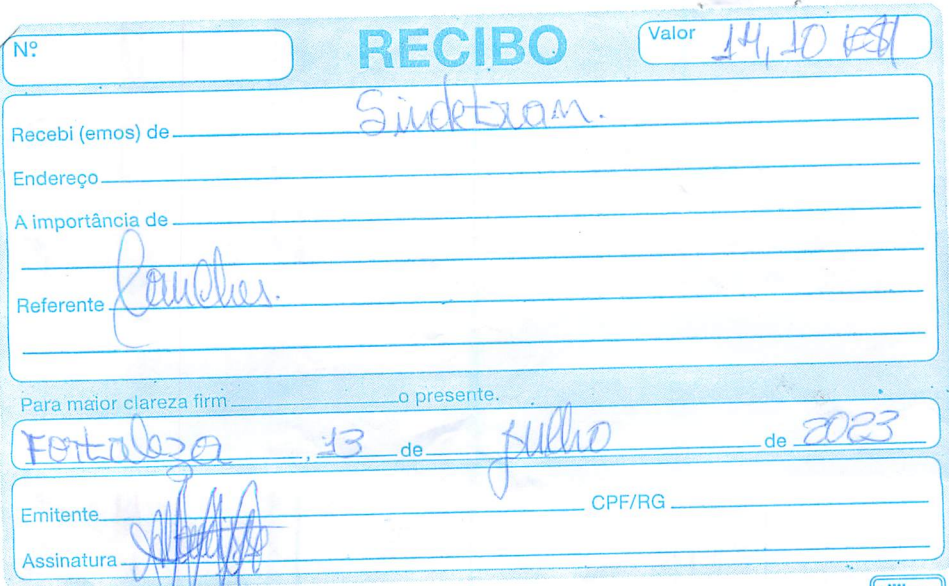 Nº
RECIBO
Valor 14,10 R$
Recebi (emos) de Sindetran.
Endereço
A importância de
Referente Lanches.
Para maior clareza firm o presente.
Fortaleza, 13 de julho de 2023
Emitente CPF/RG
Assinatura